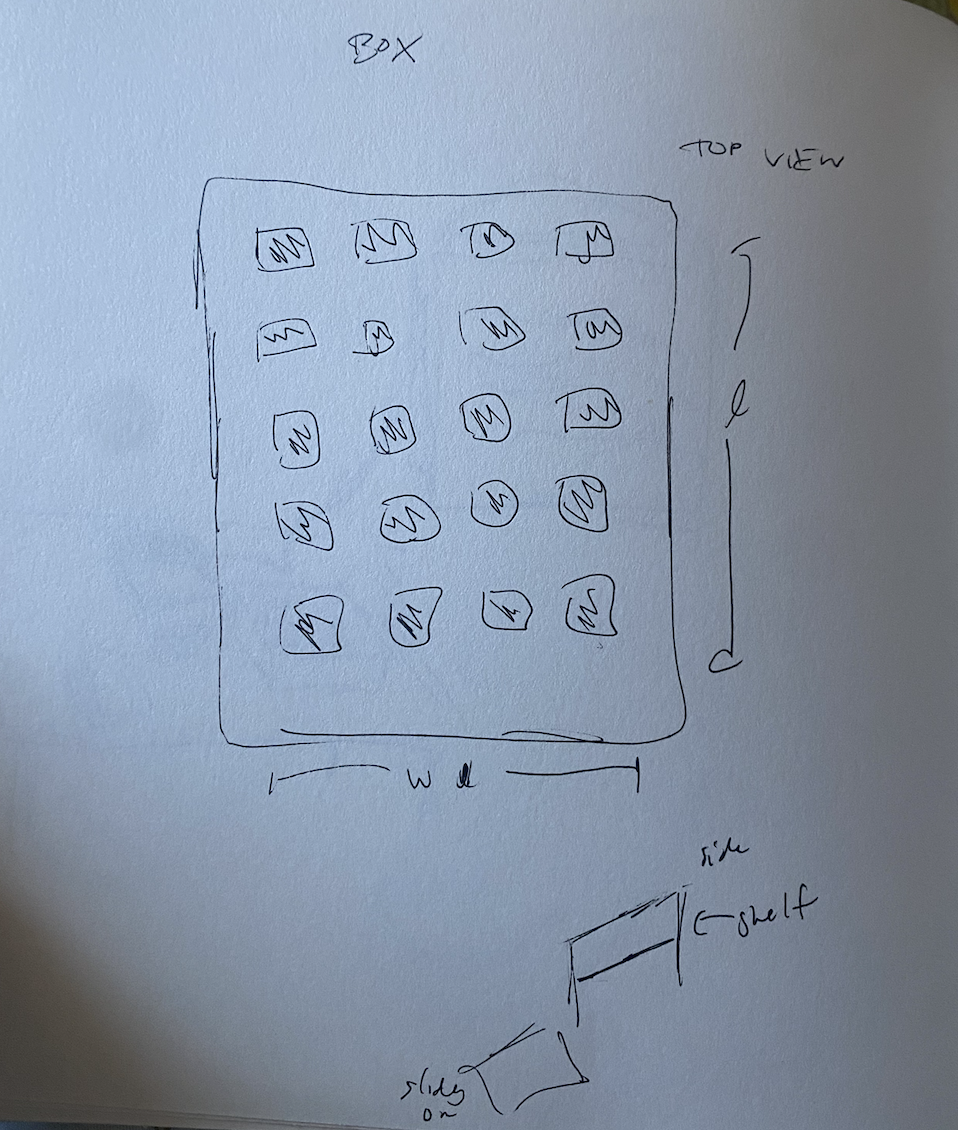 BOX
TOP VIEW
l
w
side
←shelf
slides
on